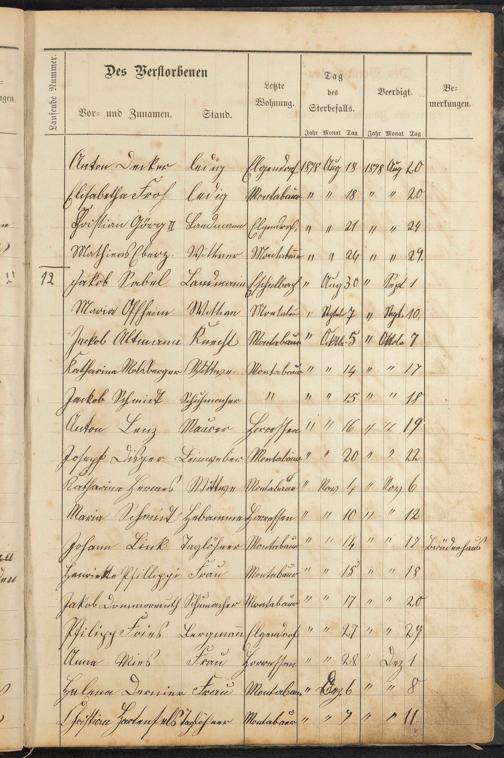 Laufende Nummer. Des Verstorbenen Letzte Wohnung. Tag des Sterbefalls. Beerdigt. Bemerkungen.
Vor- und Zunamen. Stand. Jahr Monat Tag Jahr Monat Tag
Anton Decker ledig Elgendorf 1878 Aug 18 1878 Aug 20
Elisabetha Froh ledig Montabaur " " 18 " " 20
Christian Görg II Landmann Elgendorf, " " 21 " " 24
Mathias Eberz Wittwer Montabaur " " 26 " " 29.
12 Jakob Sabel Landmann Eschelbach " Aug 30 " Sept 1
Maria Offheim Wittwe Montabaur " Septb 7 " Septb 10.
Jackob Altmann Knecht Montabaur " Oktb 5 " Oktb 7
Katharina Molsberger Wittwe Montabaur " " 14 " " 17
Jackob Schmidt Schuhmacher " " " 15 " " 18
Anton Lenz Maurer Horressen " " 16 " " 19
Joseph Leinweber Montabaur " " 20 " " 22
Katharina Hermes Wittwe Montabaur " Nov 4 " Nov 6
Maria Schmidt Hebamme Horressen " " 10 " " 12
Johann Link Taglöhner Montabaur " " 14 " " 17 Brüderhaus
Henriette Phillippi Frau Montabaur " " 15 " " 18
Jakob Dommermuth Schumacher Montabaur " " 17 " " 20
Philipp Fries Bergmann Elgendorf " " 27 " " 29
Anna Mies Frau Horressen " " 28 " Dez 1
Helena Dernier Frau Montabaur " Dez 6 " " 8
Christian Hartenfels Taglöhner Montabaur " " 7 " " 11